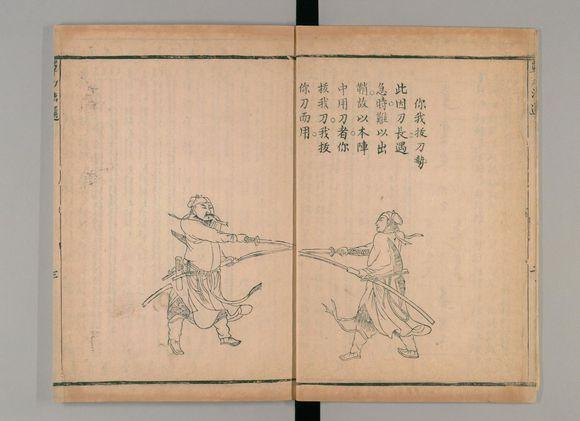 你我拔刀勢
此因刀長遇
急時難以出
鞘故以本陣
中用刀者你
拔我刀我拔
你刀而用